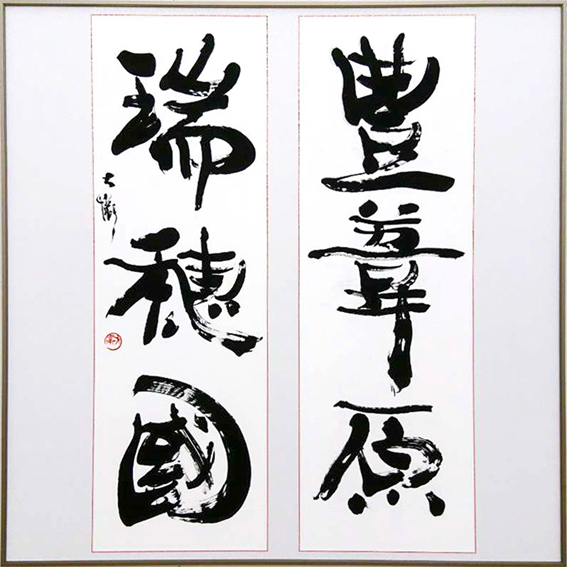 豊葦原
瑞穂國